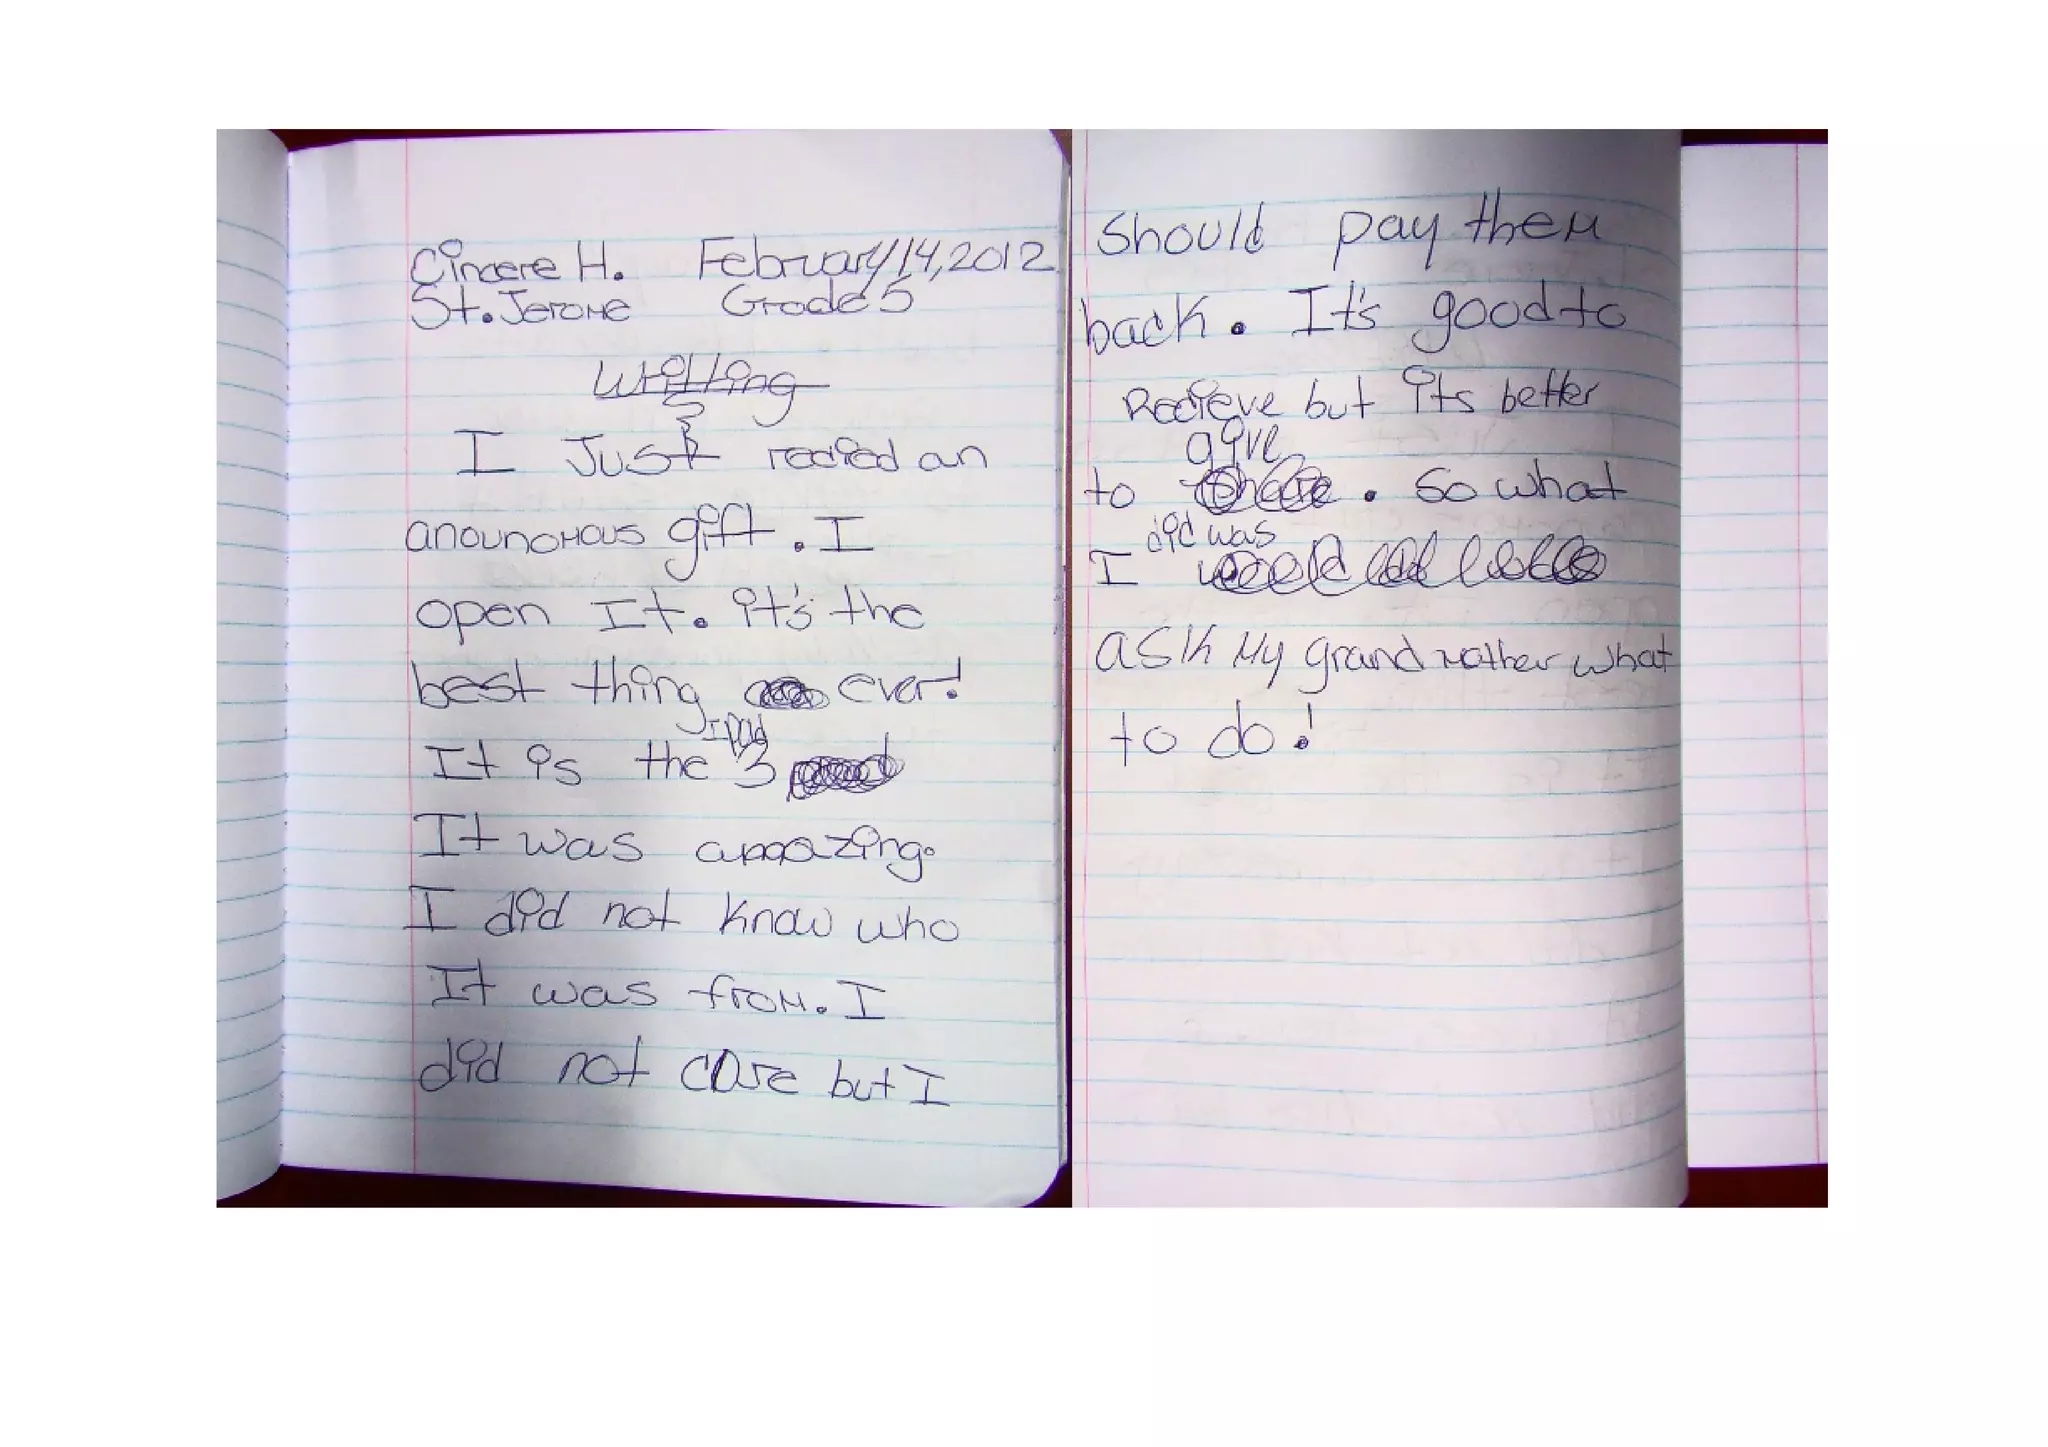 Cincere H. February 14, 2012
St. Jerome Grade 5
Writting
I Just recied an
anounomous gift. I
open It. it's the
best thing ever!
Ipad
It is the 3
It was amazing.
I did not know who
It was from. I
did not care but I
should pay them
back. It's good to
Recieve but its better
give
to . So what
did was
I
ask My grand mother what
to do!